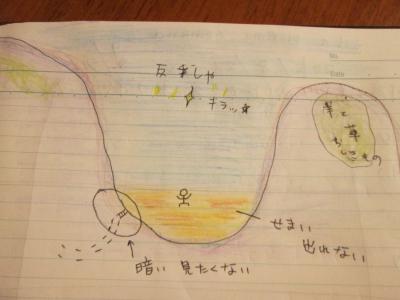 No.
Date
反射しゃ
キラッ☆
岸と草
ちいさいもの
せまい
出れない
暗い 見たくない